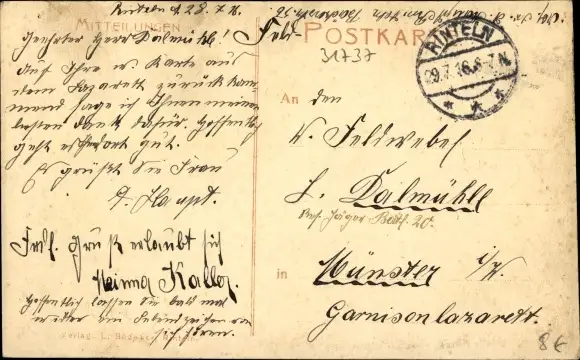 Rinteln d. 28.7.16.
MITTEILUNGEN
Geehrter Herr Dalmühle!
Auf Ihre w. Karte aus
dem Lazarett zurückkom-
mend sage ich Ihnen meinen
besten Dank dafür. Hoffentlich
geht es dort gut.
Es grüßt Sie Frau
H. Haupt.
Frdl. Gruß erlaubt sich
Minna
Hoffentlich lassen Sie bald mal
wieder ein Lebenszeichen von
sich hören.
Verlag
Feld
POSTKARTE
31737
RINTELN
29.7.16.6-7N.
An den
Feldwebel
Dalmühle
Res. Jäger Batl. 20.
in Münster i/W.
Garnisonlazarett.
8€